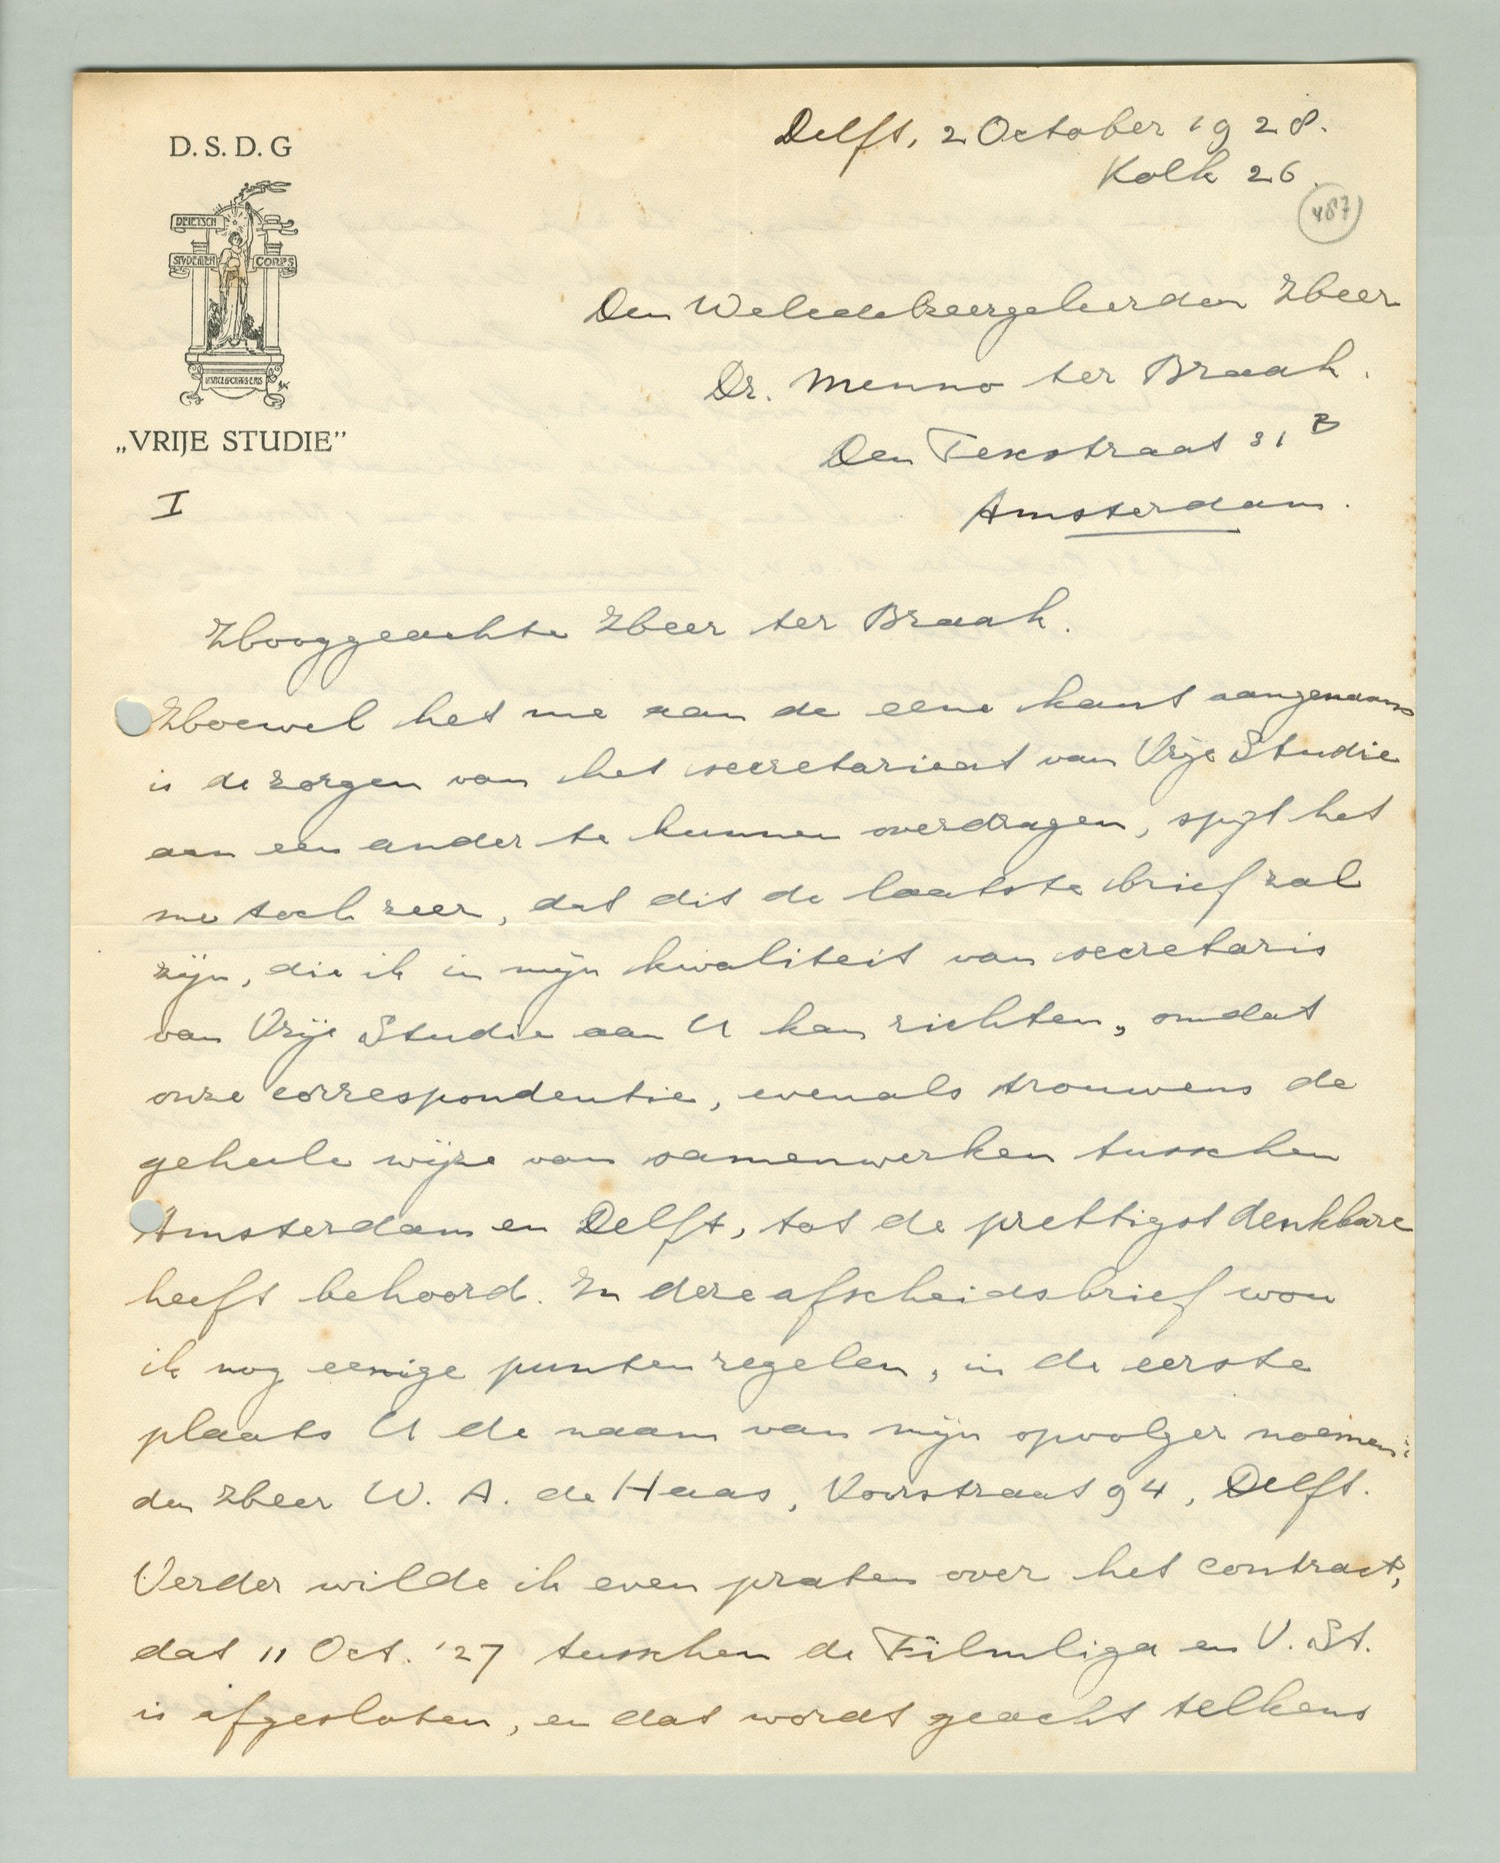 D. S. D. G
DELFTSCH
STUDENTEN CORPS
„VRIJE STUDIE”
I
Delft, 2 October 1928.
Kolk 26.
487
Den Weledelzeergeleerden Heer
Dr. Menno ter Braak.
Den Texstraat 31 B
Amsterdam.
Hooggeachte Heer ter Braak.
Hoewel het me aan de eene kant aangenaam
is de zorgen van het secretariaat van Vrije Studie
aan een ander te kunnen overdragen, spijt het
me toch zeer, dat dit de laatste brief zal
zijn, die ik in mijn kwaliteit van secretaris
van Vrije Studie aan U kan richten, omdat
onze correspondentie, evenals trouwens de
geheele wijze van samenwerken tusschen
Amsterdam en Delft, tot de prettigst denkbare
heeft behoord. In deze afscheidsbrief wou
ik nog eenige punten regelen, in de eerste
plaats U de naam van mijn opvolger noemen:
den Heer W. A. de Haas, Voorstraat 94, Delft.
Verder wilde ik even praten over het contract,
dat 11 Oct. '27 tusschen de Filmliga en V. St.
is afgesloten, en dat wordt geacht telkens